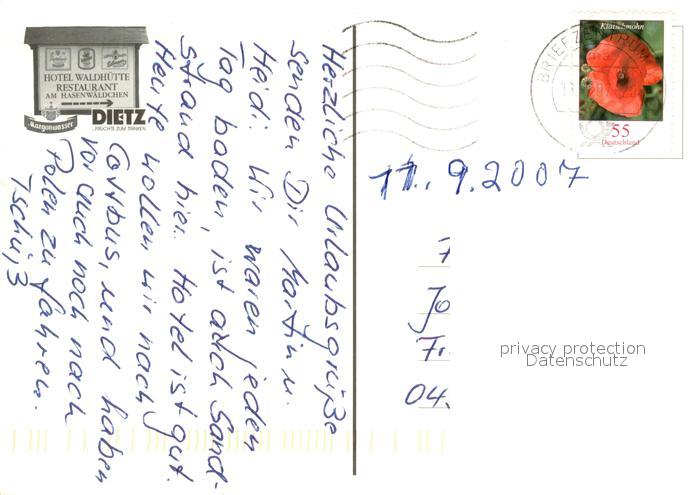 HOTEL WALDHÜTTE
RESTAURANT
AM HASENWÄLDCHEN
Margonwasser
DIETZ
...FRÜCHTE ZUM TRINKEN
Herzliche Urlaubsgrüße
senden Dir Martin u.
Heidi. Wir waren jeden
Tag baden, ist auch Sand-
strand hier. Hotel ist gut.
Heute wollen wir nach
Cottbus, und haben
vor auch noch nach
Polen zu fahren.
Tschüß
BRIEFZENTRUM
Klatschmohn
55
Deutschland
11. 9. 2007
Jo
Fr
04.
privacy protection
Datenschutz